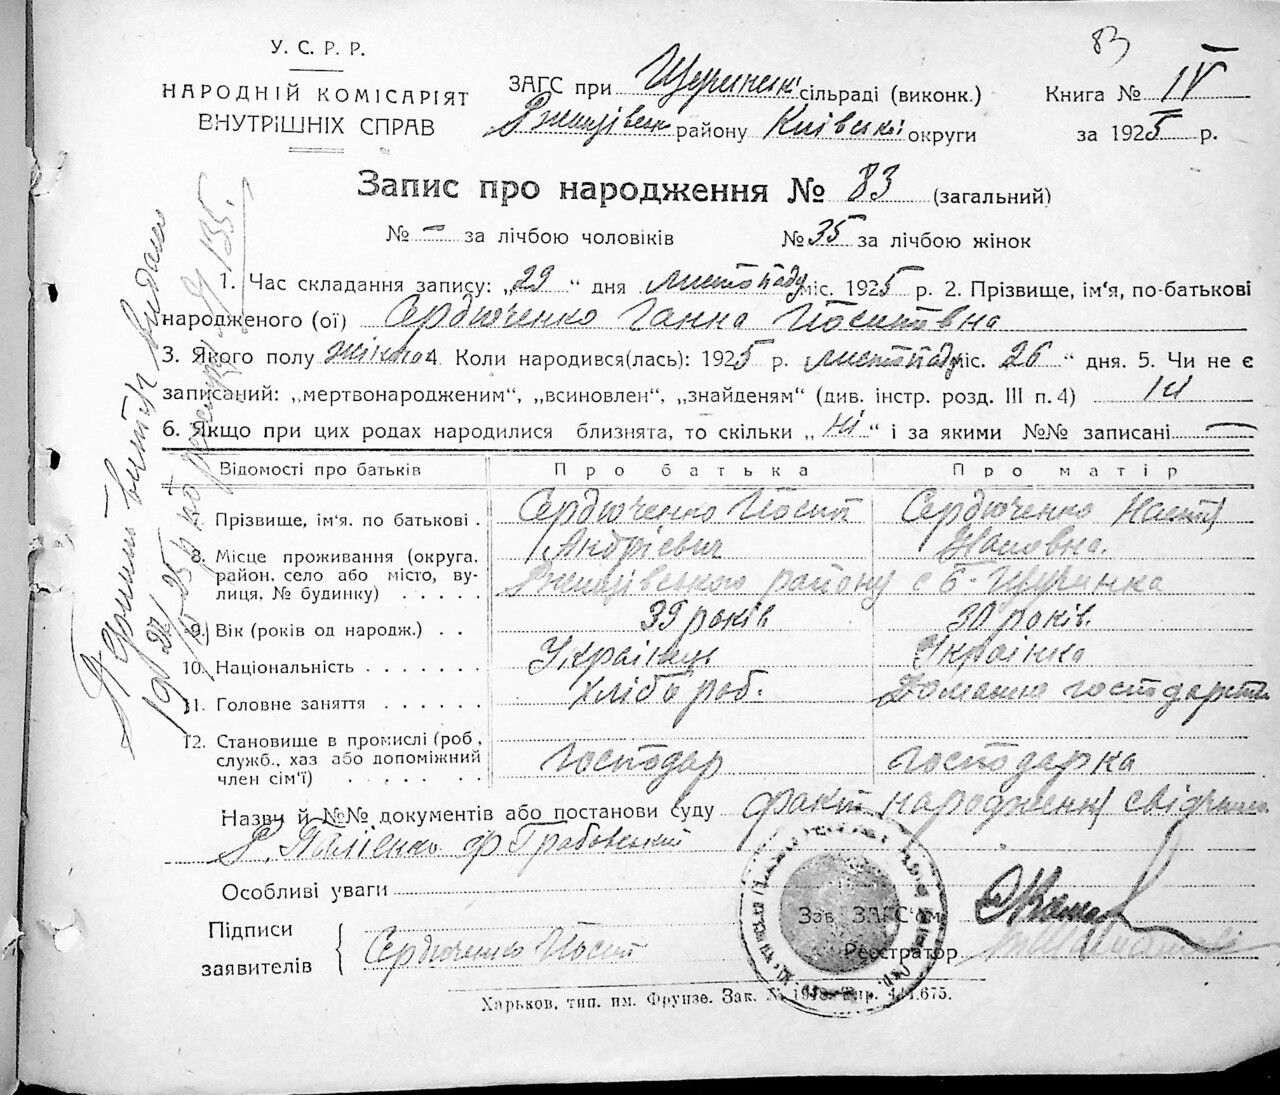 83
У. С. Р. Р.
НАРОДНІЙ КОМІСАРІЯТ
ВНУТРІШНІХ СПРАВ
ЗАГС при Щучинськ сільраді (виконк.)
Ржищівськ району Київської округи
Книга № IV
за 1925 р.
Запис про народження № 83 (загальний)
№ — за лічбою чоловіків № 35 за лічбою жінок
1. Час складання запису: „29“ дня листопаду міс. 1925 р. 2. Прізвище, ім'я, по-батькові
народженого (ої) Сердюченко Ганна Йоситовна
3. Якого полу жіноч 4. Коли народився(лась): 1925 р. листопаду міс. 26 “ дня. 5. Чи не є
записаний: „мертвонародженим“, „всиновлен“, „знайденям“ (див. інстр. розд. III п. 4) ні
6. Якщо при цих родах народилися близнята, то скільки „ Ні “ і за якими №№ записані —
Відомості про батьків Про батька Про матір
7. Прізвище, ім'я, по батькові . Сердюченко Йосип Андрієвич Сердюченко Настя
8. Місце проживання (округа, район, село або місто, вулиця, № будинку) . . . . . Ржищівського району с Б-Щучинка
9. Вік (років од народж.) . . 39 років 30 років.
10. Національність . . . . . . . Українець Українка
11. Головне заняття . . . . . . Хлібороб. Домашнє господарств
12. Становище в промислі (роб., служб., хаз або допоміжний член сім'ї) . . . . . Господар господарка
Назви й №№ документів або постанови суду факт народження свідчили
Грабовський
Особливі уваги
Підписи
заявителів
Сердюченко Йосип
Зав. ЗАГС'ом
Реєстратор
Харьков, тип. им. Фрунзе. Зак. №